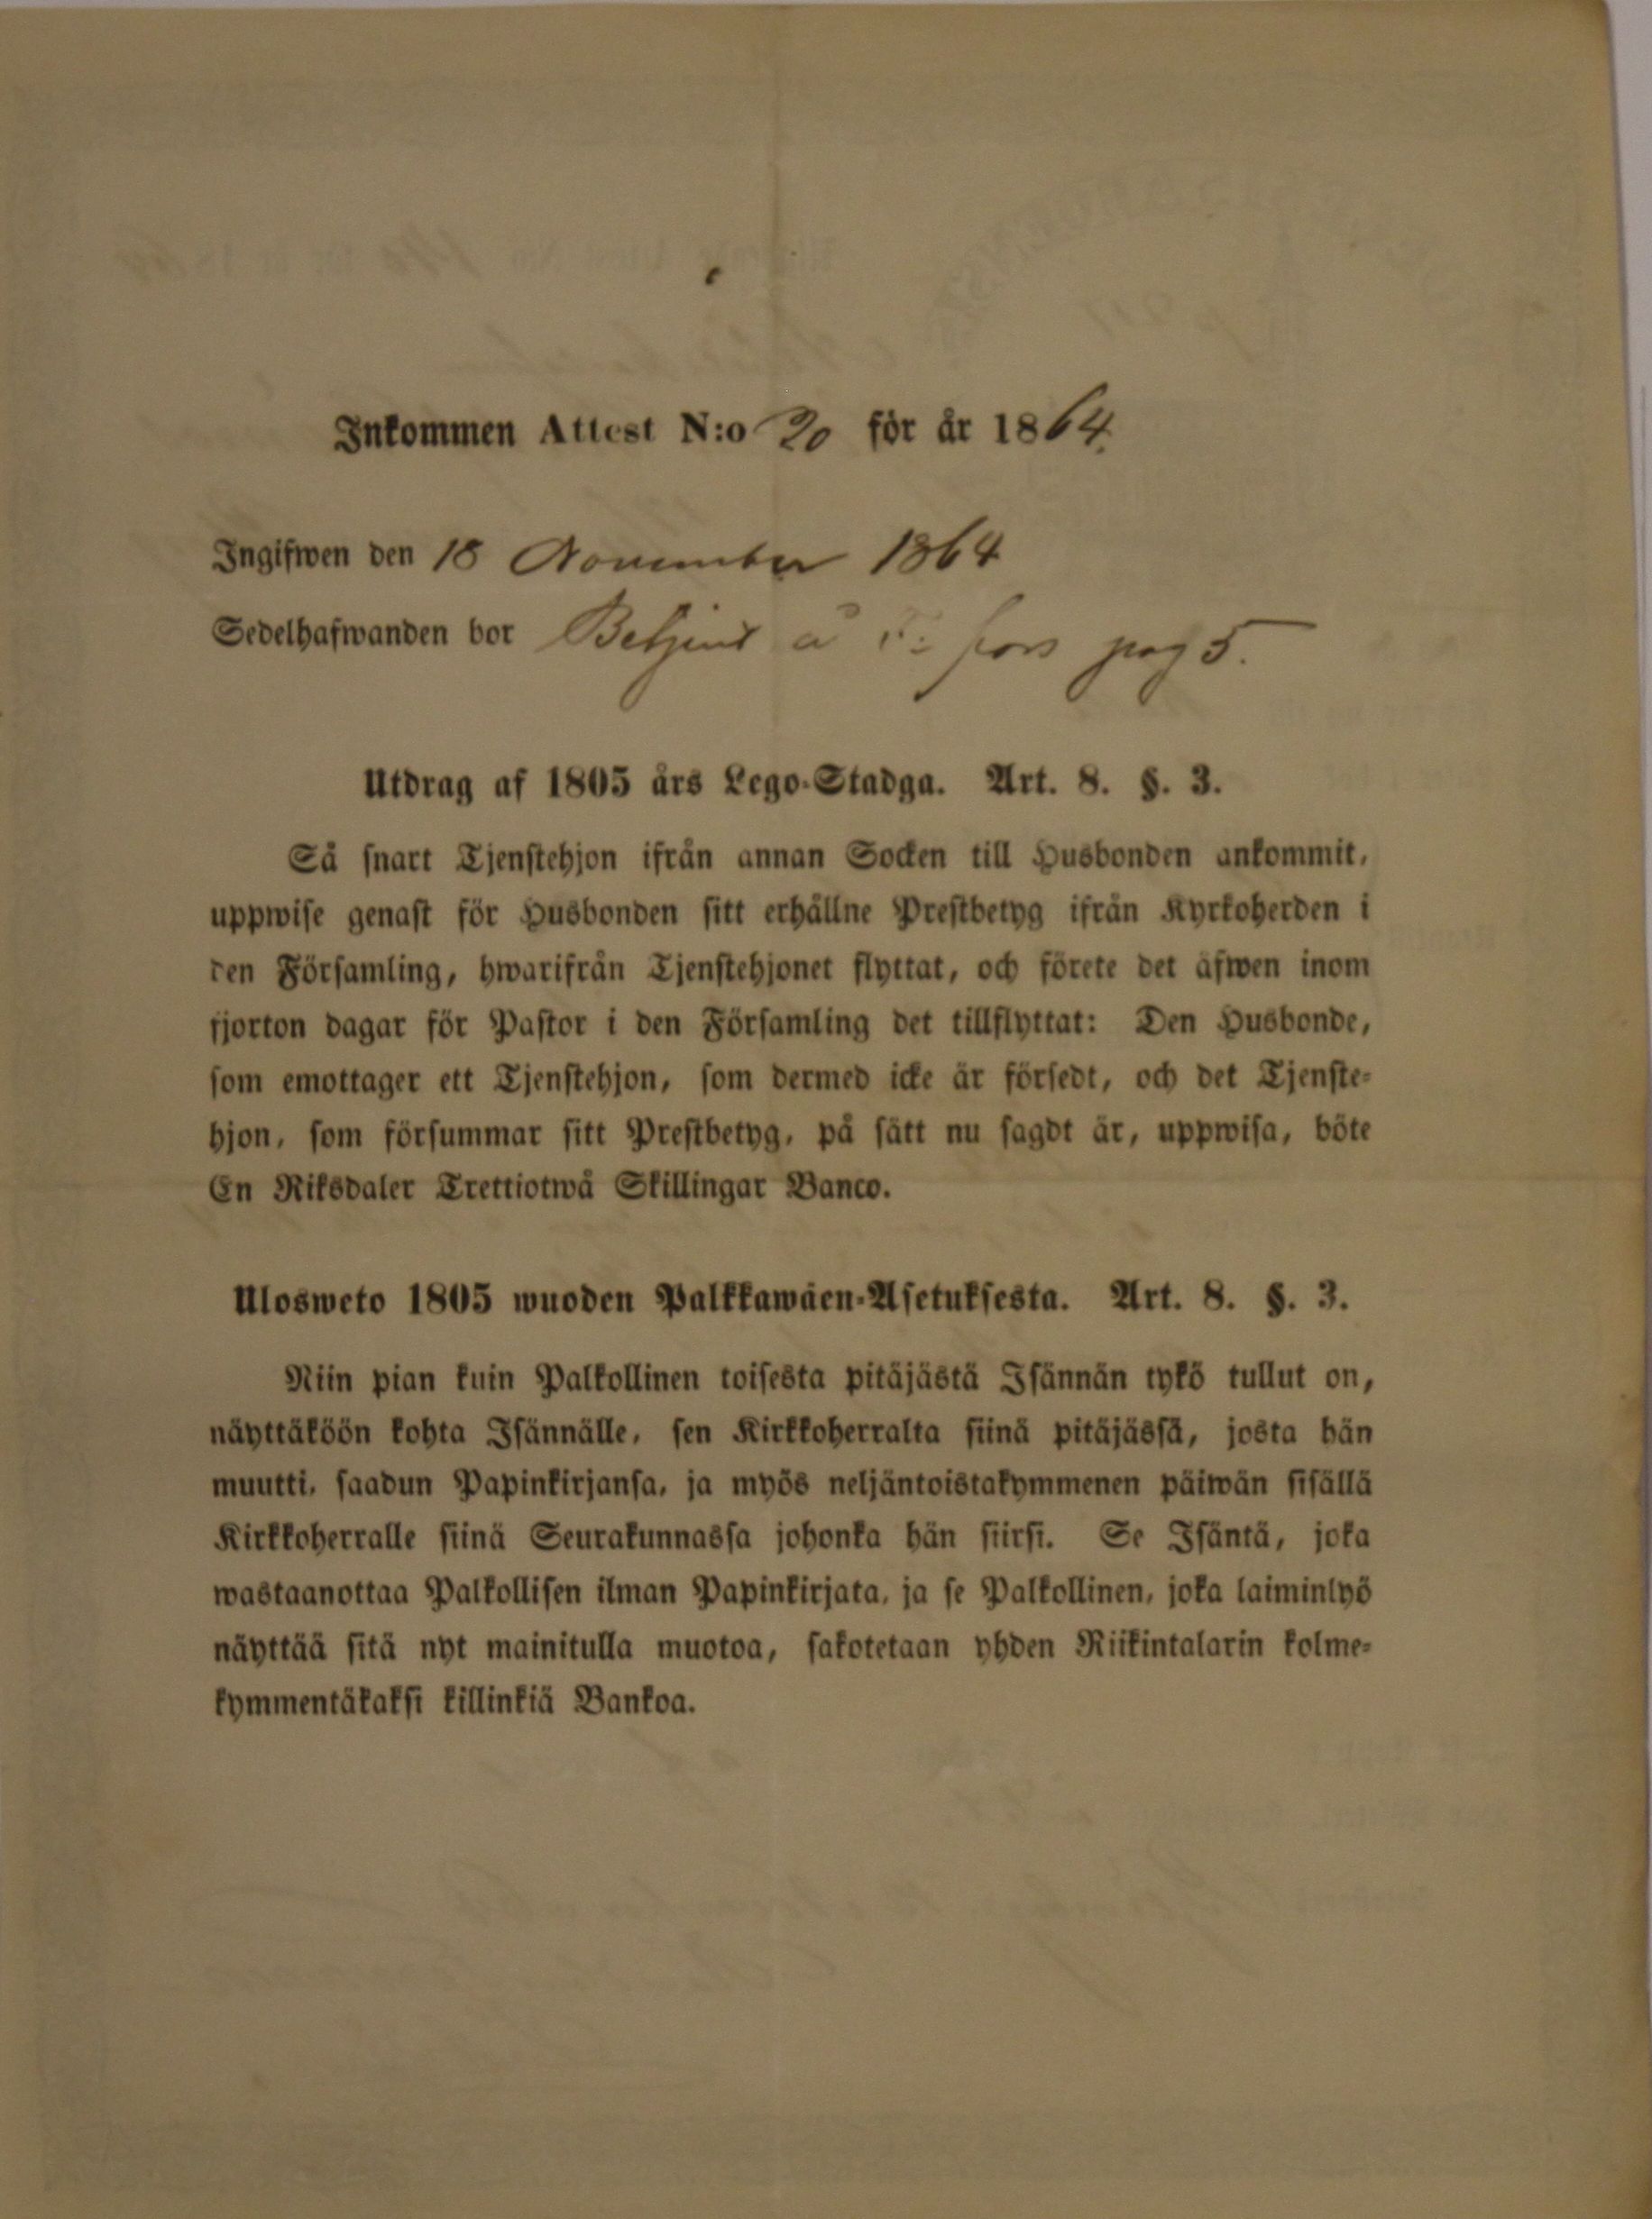 Inkommen Attest N:o 20 för år 1864.
Ingifwen den 18 November 1864
Sedelhafwanden bor Betjent å fors pag 5.
Utdrag af 1805 års Lego-Stadga. Art. 8. §. 3.
Så snart Tjenstehjon ifrån annan Socken till Husbonden ankommit,
uppwise genast för Husbonden sitt erhållne Prestbetyg ifrån Kyrkoherden i
den Församling, hwarifrån Tjenstehjonet flyttat, och förete det äfwen inom
fjorton dagar för Pastor i den Församling det tillflyttat: Den Husbonde,
som emottager ett Tjenstehjon, som dermed icke är försedt, och det Tjenste-
hjon, som försummar sitt Prestbetyg, på sätt nu sagdt är, uppwisa, böte
En Riksdaler Trettiotwå Skillingar Banco.
Ulosweto 1805 wuoden Palkkawäen-Asetuksesta. Art. 8. §. 3.
Niin pian kuin Palkollinen toisesta pitäjästä Isännän tykö tullut on,
näyttäköön kohta Isännälle, sen Kirkkoherralta siinä pitäjässä, josta hän
muutti, saadun Papinkirjansa, ja myös neljäntoistakymmenen päiwän sisällä
Kirkkoherralle siinä Seurakunnassa johonka hän siirsi. Se Isäntä, joka
wastaanottaa Palkollisen ilman Papinkirjata, ja se Palkollinen, joka laiminlyö
näyttää sitä nyt mainitulla muotoa, sakotetaan yhden Riikintalarin kolme-
kymmentäkaksi killinkiä Bankoa.